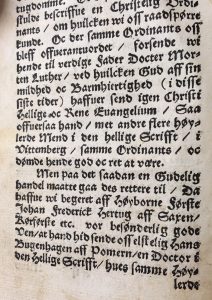 ugdomme. Oc der
skulle bescriffue en Christelig Ordi-
, om huilcken wi oss raadspørre
kunde. Oc der samme Ordinants oss
bleff offuerantuordet, forsende wi
hende til verdig Fader Doctor Mor-
ten Luther, ved huilcken Gud aff sin
mildhed oc Barmhirtighed (i disse
siste tider) haffuer send igen Christi
Hellige oc Rene Euangelium. Saa
offuersaa hand, met andre flere høy-
lerde Mend i den hellige Scrifft, i
Vittemberg, samme Ordinants, oc
dømde hende god oc ret at være.
Men paa det saadan en Gudelig
handel maatte gaa des rettere til, Da
haffue wi begeret aff Høyborne Første
Johan Frederick Hertug aff Saxen,
Kørførste etc. vor besønderlig gode
Ven, at hand hid sende oss elskelig Hans
Bugenhagen aff Pomern, en Doctor i
den Hellige Scrifft, hues samme Høy-
lerde